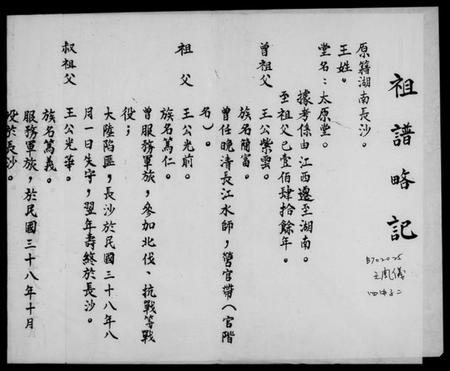 祖譜略記
B702025
王鳳儀
四年二
原籍湖南長沙。
王姓。
堂名：太原堂。
據考係由江西遷至湖南。
至祖父已壹佰肆拾餘年。
曾祖父
王公紫雲。
族名蘭富。
曾任晚清長江水師，營官帶（官階
名）。
祖父
王公光前。
族名篤仁。
曾服務軍旅，參加北伐、抗戰等戰
役；
大陸陷匪，長沙於民國三十八年八
月一日失守，翌年壽終於長沙。
叔祖父
王公光華。
族名篤義。
服務軍旅，於民國三十八年十月
歿於長沙。